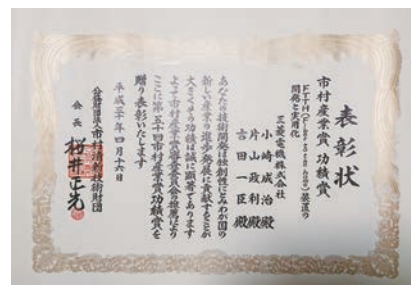 表彰状
市村産業賞 功績賞
FTTH(Fiber to the home)装置の
開発と実用化
三菱電機株式会社
小崎成治殿
片山政利殿
吉田一臣殿
あなたの技術開発は独創性にとみわが国の
新しい産業の進歩発展に貢献することが
大きくその功績は誠に顕著であります
よって市村産業賞審査委員会の推薦により
ここに第五十回市村産業賞功績賞を
贈り表彰いたします
平成三十年四月十六日
公益財団法人市村清新技術財団
会長 桜井正光